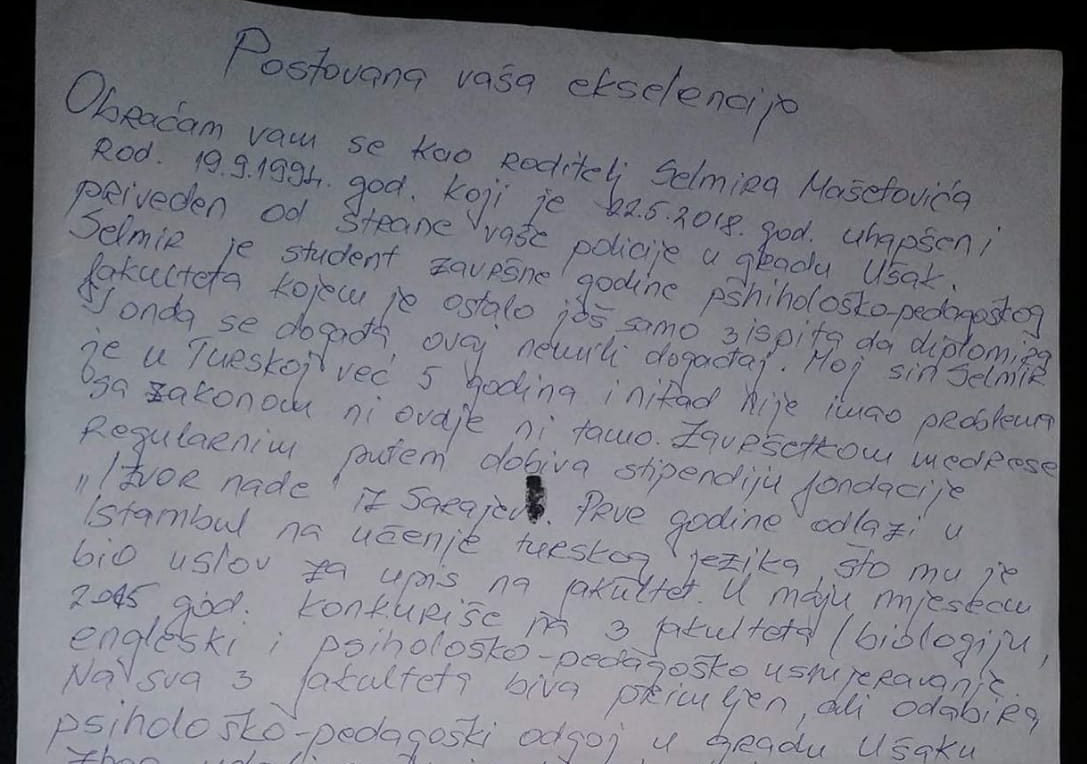 Poštovana vaša ekselencijo
Obraćam vam se kao roditelj Selmira Mašetovića
Rod. 19.9.1994. god. koji je 22.5.2018. god. uhapšen i
priveden od strane vaše policije u gradu Ušak.
Selmir je student završne godine pšihološko-pedagoškog
fakulteta kojem je ostalo još samo 3 ispita da diplomira
I onda se događa ovaj nemili događaj. Moj sin Selmir
je u Turskoj već 5 godina i nikad nije imao problema
sa zakonom ni ovdje ni tamo. Završetkom medrese
Regularnim putem dobiva stipendiju fondacije
"Izvor nade" iz Sarajev. Prve godine odlazi u
Istambul na učenje turskog jezika što mu je
bio uslov za upis na fakultet. U maju mjesecu
2015 god. konkuriše na 3 fakulteta (biologiju,
engleski i psihološko-pedagoško usmjeravanje.
Na sva 3 fakulteta biva primljen, ali odabira
psihološko-pedagoški odgoj u gradu Ušaku